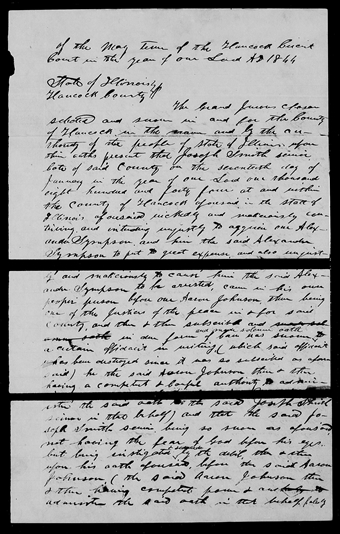 of the May term of the Hancock Circuit
Court in the year of our Lord AD 1844
State of Illinois
Hancock County
The Grand Jurors chosen
selected and sworn in and for the County
of Hancock in the name and by the au-
thority of the people of State of Illinois upon
their oaths present that Joseph Smith senior
late of said County on the seventeenth day of
January in the year of our Lord one thousand
eight hundred and forty four at and within
the County of Hancock aforesaid in the state of
Illinois aforesaid wickedly and maliciously con-
triving and intending unjustly to aggrieve one Alex-
ander Sympson and him the said Alexander
Sympson to put to great expense and also unjust-
ly and maliciously to cause him the said Alex-
ander Sympson to be arrested, came in his own
proper person before one Aaron Johnson then being
one of the Justices of the peace in & for said
County, and then & there subscribed and
and upon solemn oath
in due form of law was sworn to
a certain affidavit in writing (which said affidavit
has been destroyed since it was so subscribed as afore-
said) he the said Aaron Johnson then & there
having a competent & lawful authority to admin-
ister the said oath to the said Joseph Smith
senior in that behalf) and that the said Jo-
seph Smith senior being so sworn as aforesaid
not having the fear of God before his eyes
but being instigated by the devil, then & there
upon his oath aforesaid, before the said Aaron
Johnson, (the said Aaron Johnson then
& there having competent power & authority to
administer the said oath in that behalf)